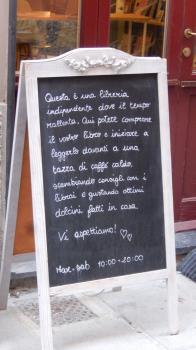 Questa è una libreria
indipendente dove il tempo
rallenta. Qui potete comprare
il vostro libro e iniziare a
leggerlo davanti a una
tazza di caffè caldo,
scambiando consigli con i
librai e gustando ottimi
dolcini fatti in casa.
Vi aspettiamo!
Mar-sab 10:00-20:00